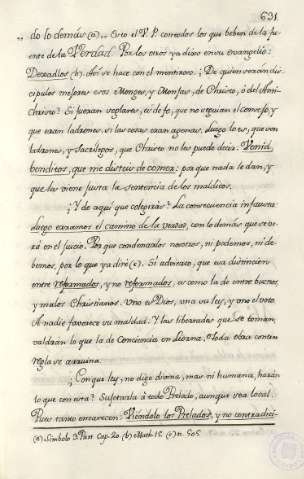 631
do lo demás (a).,, Esto el V. P. contodos los que beben dela fu-
ente dela Verdad. Por los otros ya dixo en su evangelio:
Dexadlos (b). Así se hace con el mentiroso. ¿De quien seran dis-
cipulos mejores esos Monges, y Monjas, de Christo, ó del Anti-
christo? Si fueran seglares, à fe, que no siguieran el consejo, y
que serian ladrones, si las cosas eran agenas. Luego lo es, que son
ladrones, y Sacrilegos, que Christo no les puede decir: Venid,
benditos, que me disteis de comer: por que nada le dan, y
que les viene justa la sentencia de los malditos.
¿Y de aquí que colegirás? La consecuencia infausta:
luego erramos el camino de la verdad, con lo demás que se ve-
rá en el juicio. Por que condenados nosotros, ni podemos, ni de-
bemos, por lo que ya diré (c). Si advierto, que esa distincion
entre reformados, y no reformados, es como la de entre buenos,
y malos Christianos. Uno es Dios, una su ley, y uno el voto.
A nadie favorece su maldad. Y las libertades que se toman,
valdrán lo que la de Conciencia en Liorna. Toda obra contra
regla se arruina.
¿Con que ley, no digo divina, mas ni humana, harán
lo que con esta? Sujetarala á todo Prelado, aunque sea local.
Pues tanto encarecen: Viendolo los Prelados, y no contradici-
(a) Simbolo 3. Part. Cap. 20. (b) Math. 15. (c) n. 505.